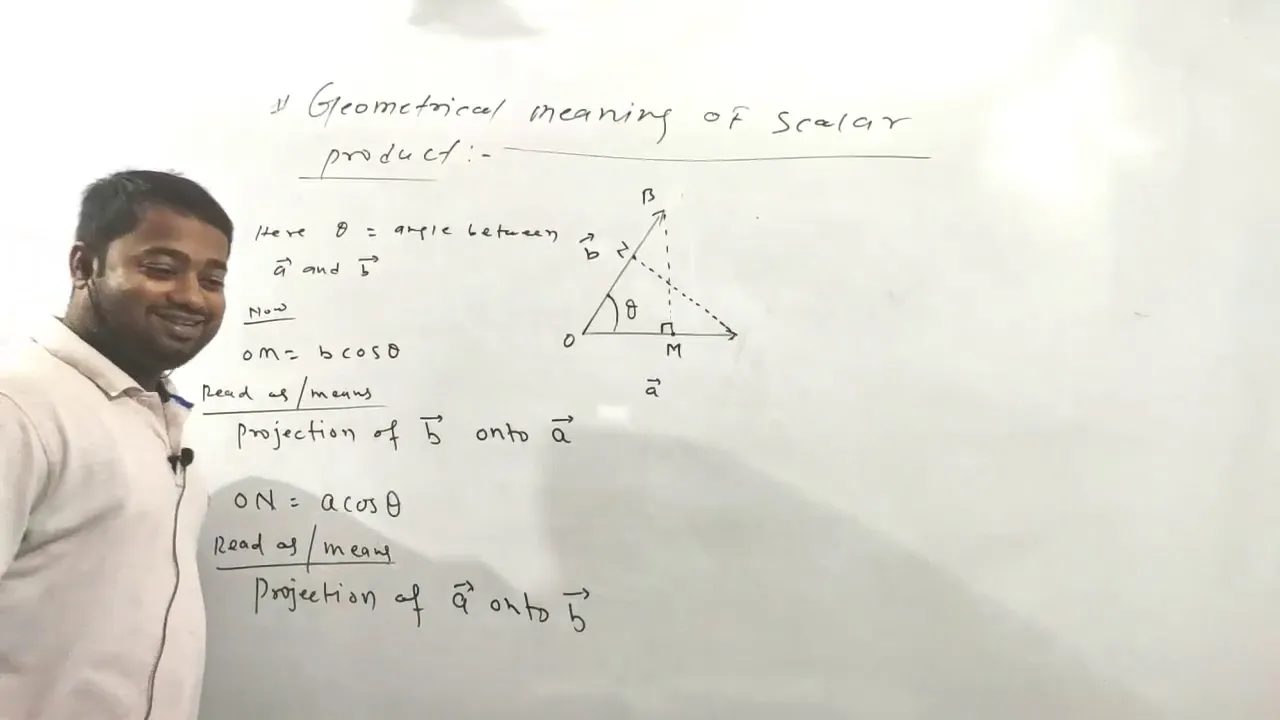 1) Geometrical meaning of scalar
product :-
Here θ = angle between
a⃗ and b⃗
Now
OM = b cosθ
Read as / means
projection of b⃗ onto a⃗
ON = a cosθ
Read as / means
projection of a⃗ onto b⃗
B
b⃗ N
θ
O
M
a⃗